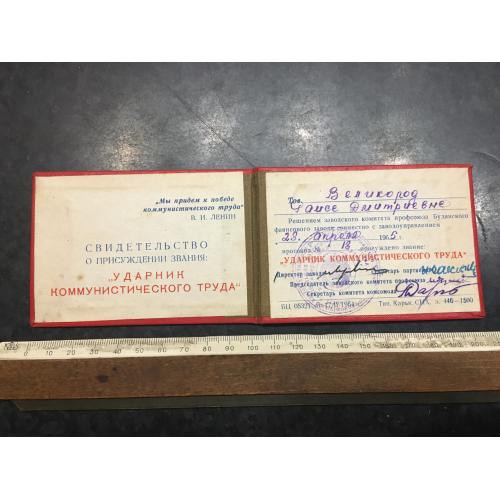 „Мы придем к победе
коммунистического труда"
В. И. ЛЕНИН
СВИДЕТЕЛЬСТВО
О ПРИСУЖДЕНИИ ЗВАНИЯ:
"УДАРНИК
КОММУНИСТИЧЕСКОГО ТРУДА"
Тов. Великород
Таисе Дмитриевне
Решением заводского комитета профсоюза Будянского
фаянсового завода совместно с заводоуправлением
23 апреля 196
протокол № 13 присуждено звание:
"УДАРНИК КОММУНИСТИЧЕСКОГО ТРУДА"
Директор завода Секретарь
Председатель заводского комитета профсоюза
Секретарь комитета комсомола
БЦ 17/II 1964 г. Тип. з. 446—1500
0 10 20 30 40 50 60 70 80 90 100 110 120 130 140 150 160 170 180 190 200